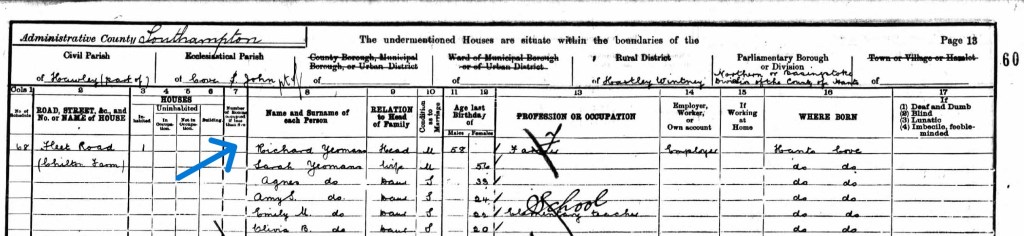 Administrative County Southampton The undermentioned Houses are situate within the boundaries of the Page 13
60
Civil Parish Ecclesiastical Parish County Borough, Municipal Borough, or Urban District Ward of Municipal Borough or of Urban District Rural District Parliamentary Borough or Division Town or Village or Hamlet
of Hawley (part of) of Cove S. John of of of Hartley Wintney Northern or Basingstoke Division of the County of Hants of
Cols 1 2 3 4 5 6 7 8 9 10 11 12 13 14 15 16 17
No. of Schedule ROAD, STREET, &c., and No. or NAME of HOUSE HOUSES Inhabited Uninhabited In Occupation Not in Occupation Building Number of Rooms occupied if less than five Name and Surname of each Person RELATION to Head of Family Condition as to Marriage Age last Birthday of Males Females PROFESSION OR OCCUPATION Employer, Worker, or Own account If Working at Home WHERE BORN If (1) Deaf and Dumb (2) Blind (3) Lunatic (4) Imbecile, feeble-minded
68 Fleet Road 1 Richard Yeomans Head M 58 Farmer Employer Hants Cove
(Chilton Farm) Sarah Yeomans Wife M 56 do do
Agnes do Daur S do do
Amy S. do Daur S 24 School do do
Emily M. do Daur S 22 Elementary teacher do do
Olivia B. do Daur S 20 do do